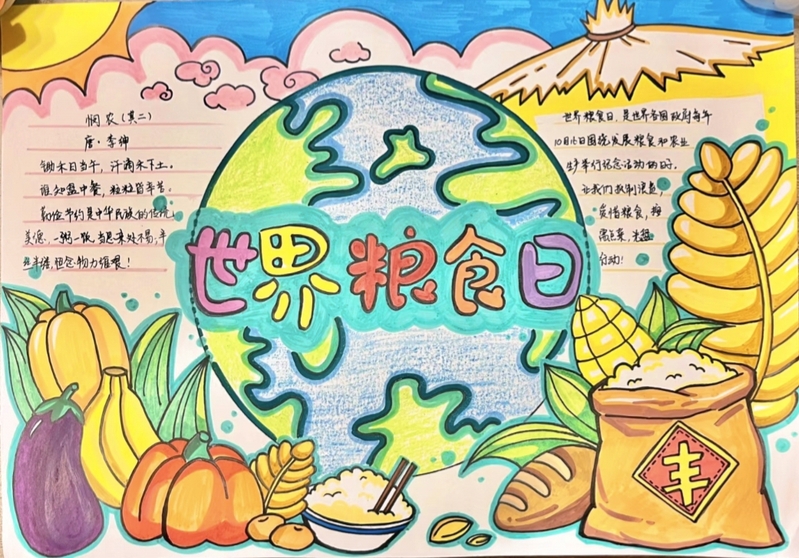 悯农（其二）
唐·李绅
锄禾日当午，汗滴禾下土。
谁知盘中餐，粒粒皆辛苦。
勤俭节约是中华民族的传统
美德，一粥一饭，当思来处不易，半
丝半缕，恒念物力维艰！
世界粮食日
世界粮食日，是世界各国政府每年
10月16日围绕发展粮食和农业
生产举行纪念活动的日子。
让我们放制浪费，
爱惜粮食，
行动！
丰